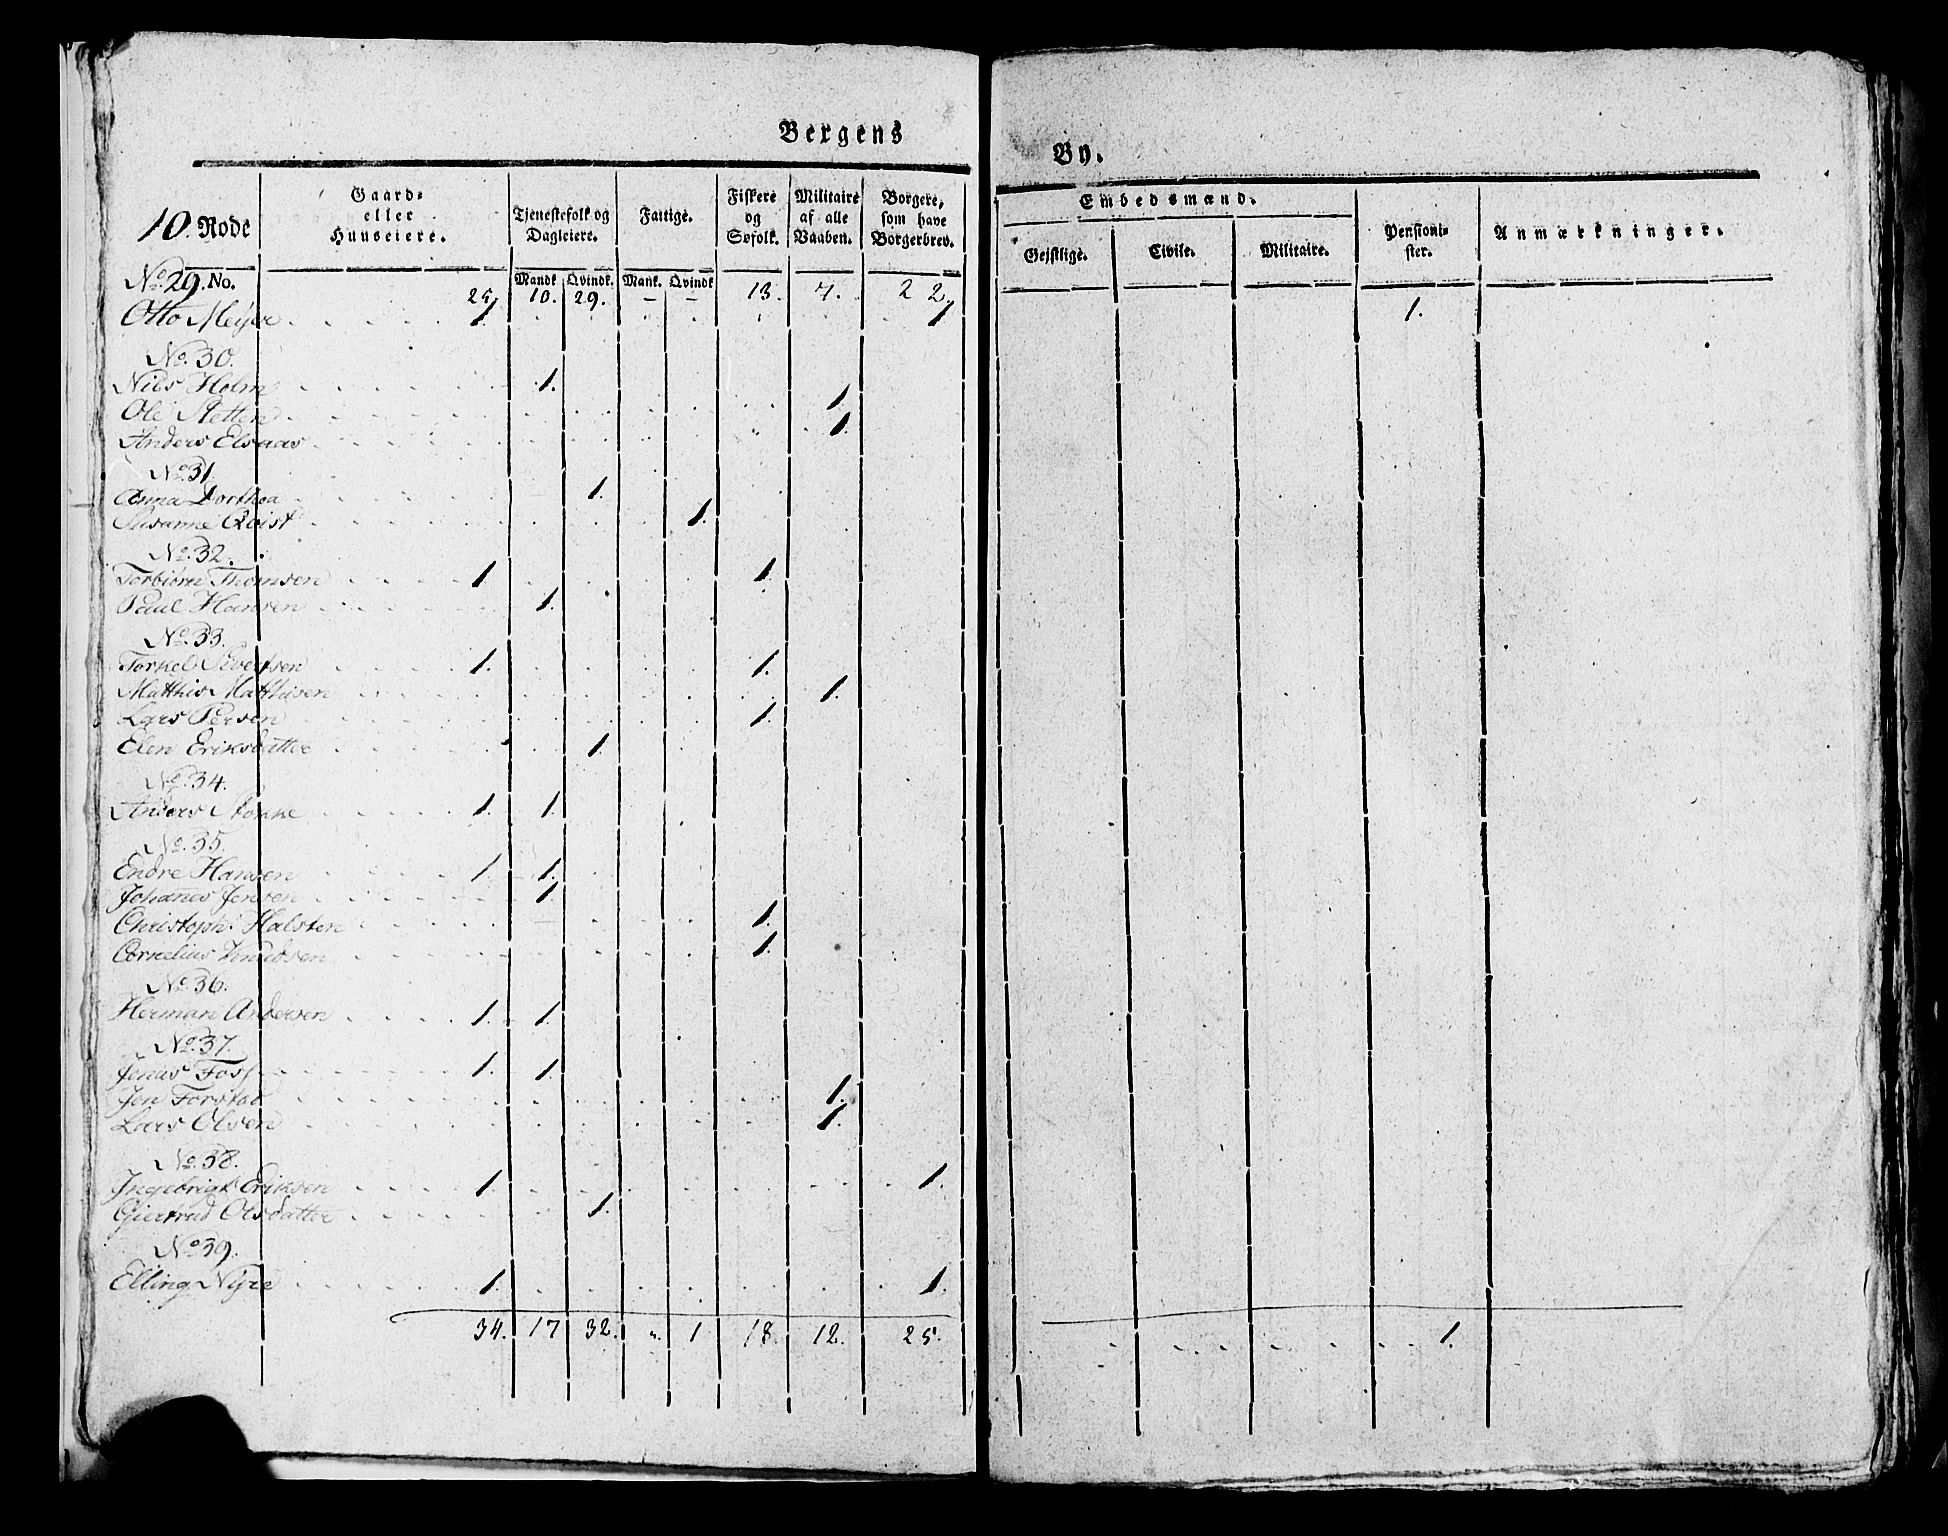 Bergens By.
10. Rode No. Gaard- eller Huuseiere. Tjenestefolk og Dagleiere. Mandk Qvindk. Fattige. Mank. Qvindk Fiskere og Søfolk. Militaire af alle Vaaben. Borgere, som have Borgerbrev. Embedsmænd. Gejstlige. Civile. Militaire. Pensionister. Anmærkninger.
No. 29. 25 10. 29. - - 13. 7. 22.
Otto Meijer 1. 1. 1.
No. 30.
Niels Holm 1.
Ole Sletten 1.
Anders Elsaas 1.
No. 31
Anna Dorthea 1.
Susanne Qvist 1.
No. 32.
Torbiörn Thomsen 1. 1.
Paul Hansen 1.
No. 33.
Torkel Sivertsen 1. 1.
Matthis Matthisen 1.
Lars Persen 1.
Elen Eriksdatter 1.
No. 34.
Anders Stokke 1. 1.
No. 35.
Endre Hansen 1. 1.
Johanes Jensen 1.
Christoph: Halsten 1.
Cornelius Knudsen 1.
No. 36.
Herman Andersen 1. 1.
No. 37.
Jonas Foss 1. 1.
Jon Forstad 1.
Lars Olsen 1.
No. 38.
Ingebrigt Eriksen 1. 1.
Giertrud Olsdatter 1.
No. 39.
Elling Nyre 1. 1.
34. 17 32. " 1 18. 12. 25. 1.